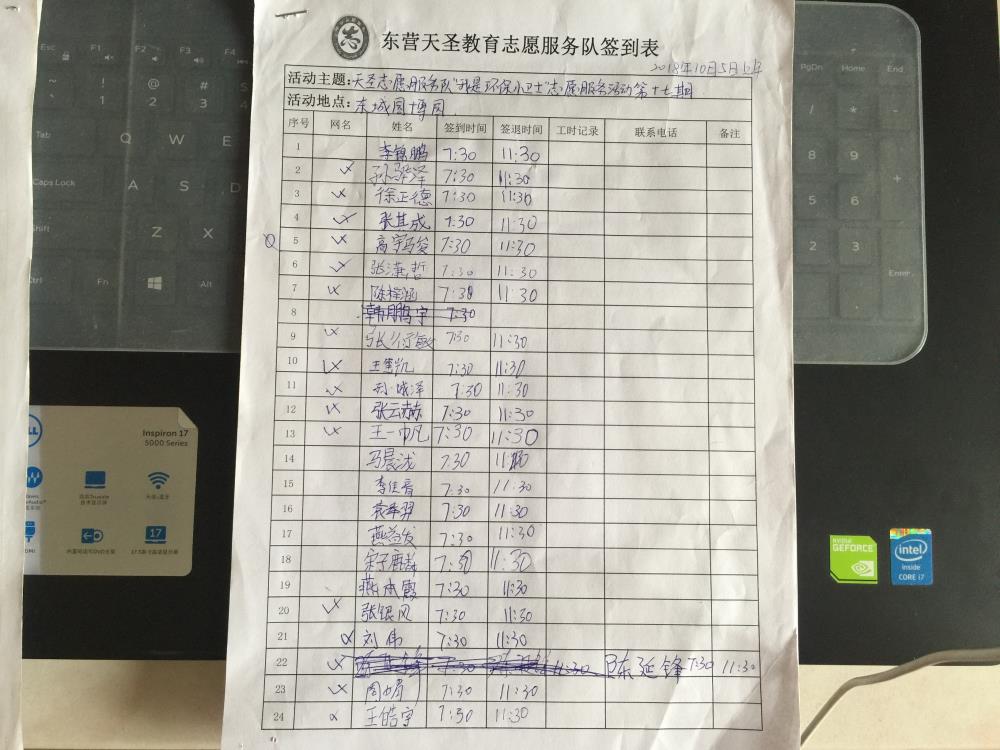 志
东营天圣教育志愿服务队签到表
2018年10月5日上午
活动主题:天圣志愿服务队"我是环保小卫士"志愿服务活动第十七期
活动地点:东城园博园
序号 网名 姓名 签到时间 签退时间 工时记录 联系电话 备注
1 李镇鹏 7:30 11:30
2 7:30 11:30
3 徐正德 7:30 11:30
4 张其成 7:30 11:30
5 高宇骏 7:30 11:30
6 张潇哲 7:30 11:30
7 陈梓涵 7:30 11:30
8 韩鹏宇 7:30
9 张衍敏 7:30 11:30
10 7:30 11:30
11 7:30 11:30
12 张云赫 7:30 11:30
13 王一帆 7:30 11:30
14 马晨泷 7:30 11:30
15 李佳音 7:30 11:30
16 7:30 11:30
17 燕益发 7:30 11:30
18 7:30 11:30
19 燕本霞 7:30 11:30
20 张银风 7:30 11:30
21 刘伟 7:30 11:30
22 陈延锋 7:30 11:30
23 周娟 7:30 11:30
24 王皓宇 7:30 11:30
Esc F1 F2 F3 F4
Tab Q W E
Caps Lock A S D
Shift Z X
Ctrl Fn Alt
PgDn Home End
8 9
5 6
2 3
Enter
DELL
Inspiron 17
5000 Series
17
HDMI
NVIDIA
GEFORCE
intel
inside
CORE i7